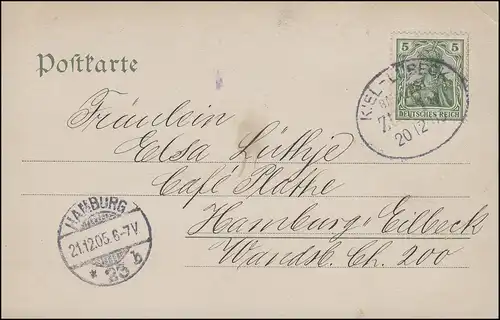 Postkarte
5 5
DEUTSCHES REICH
KIEL-LÜBECK
20 12
Fräulein
Elsa Lüthje
Café Plathe
Hamburg-Eilbeck
Wandsb. Ch. 200
HAMBURG
21.12.05. 6-7V
* 23 b